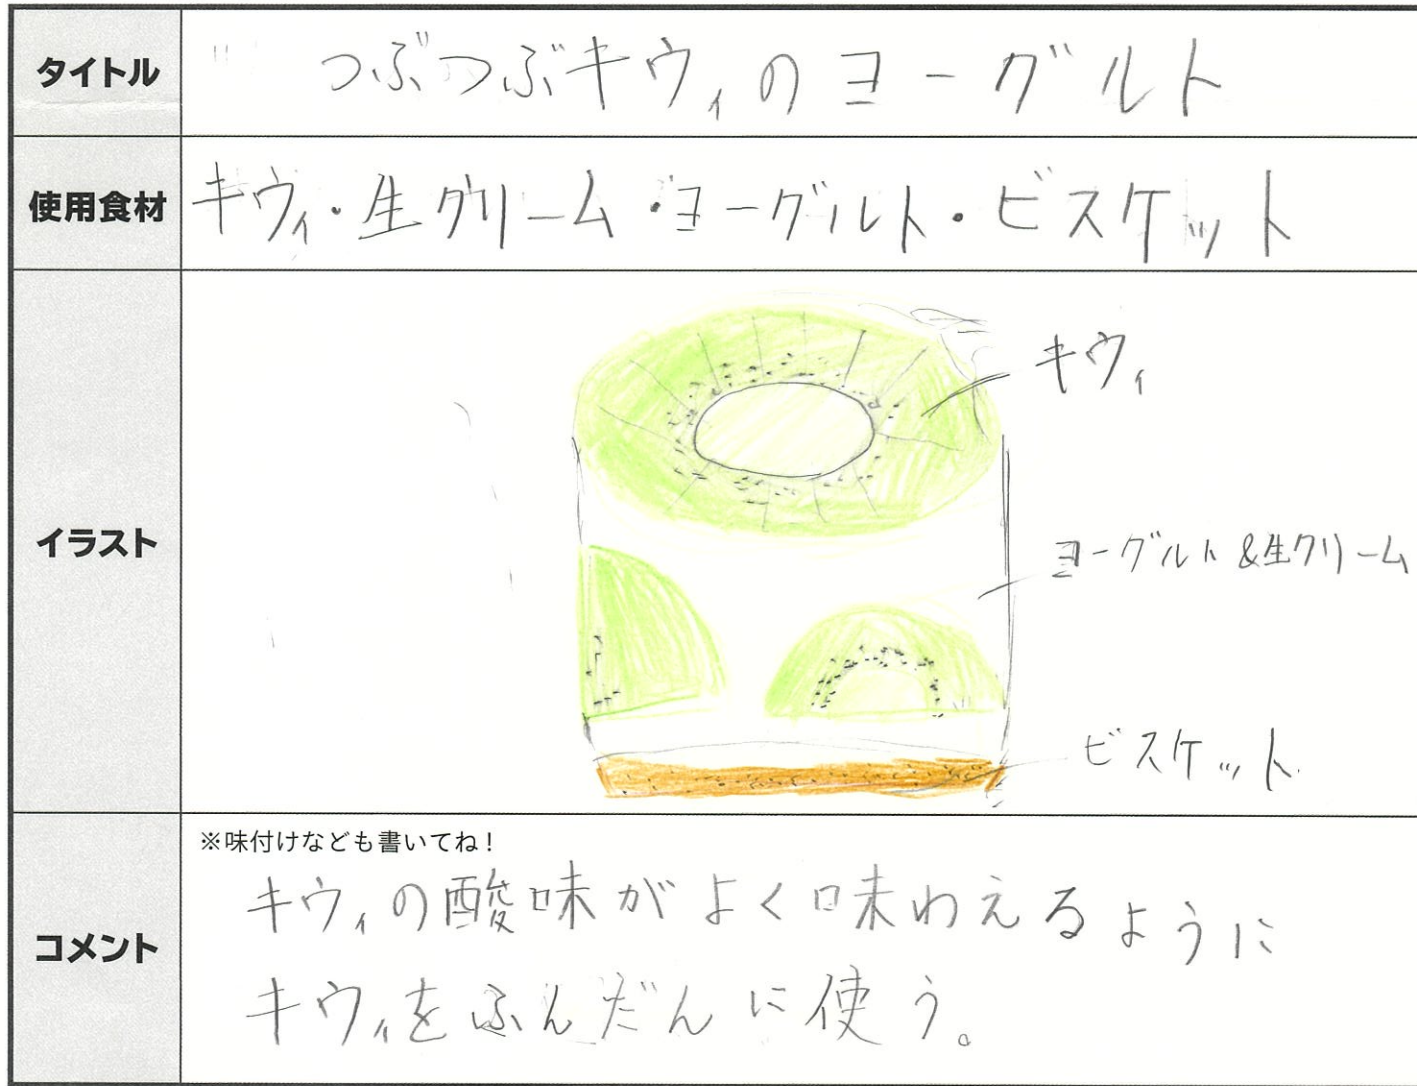 タイトル
つぶつぶキウィのヨーグルト
使用食材
キウィ・生クリーム・ヨーグルト・ビスケット
イラスト
キウィ
ヨーグルト&生クリーム
ビスケット
コメント
※味付けなども書いてね!
キウィの酸味がよく味わえるように
キウィをふんだんに使う。